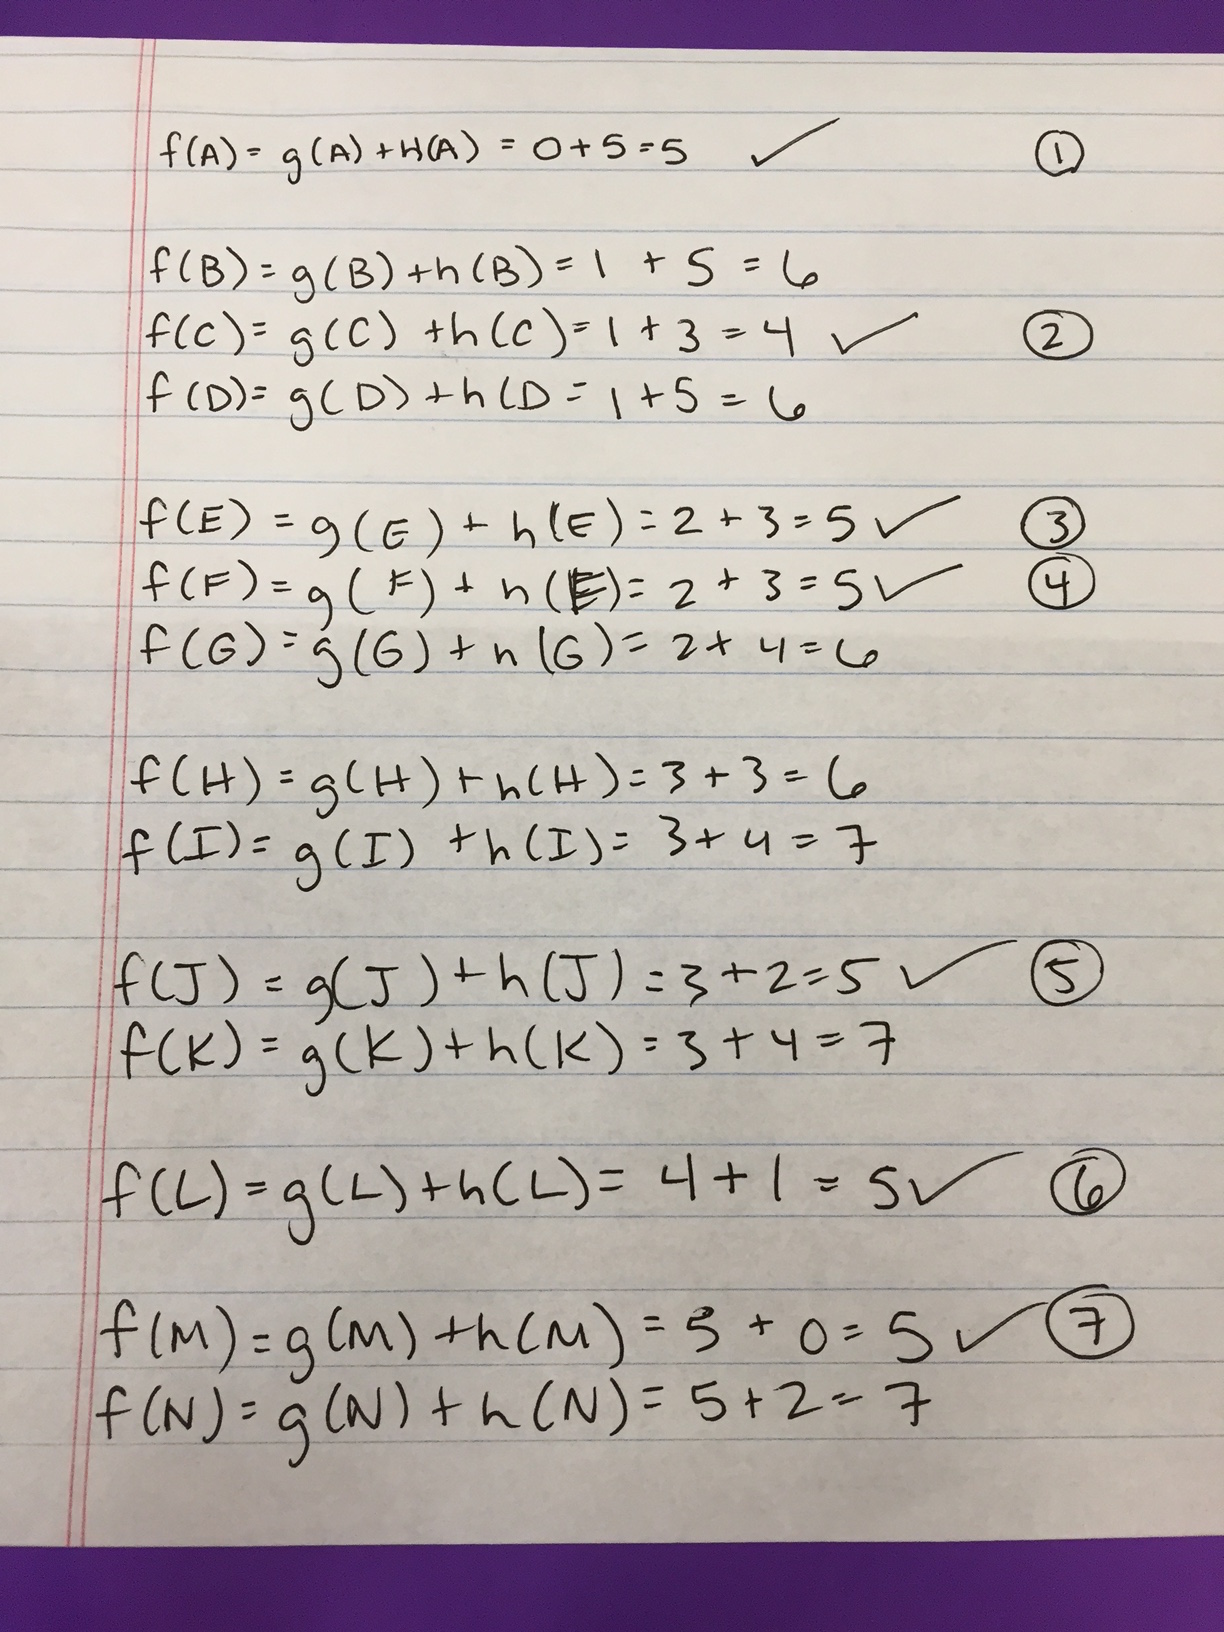 f(A) = g(A) + H(A) = 0 + 5 = 5 ✓ ①
f(B) = g(B) + h(B) = 1 + 5 = 6
f(C) = g(C) + h(C) = 1 + 3 = 4 ✓ ②
f(D) = g(D) + h(D = 1 + 5 = 6
f(E) = g(E) + h(E) = 2 + 3 = 5 ✓ ③
f(F) = g(F) + h(E) = 2 + 3 = 5 ✓ ④
f(G) = g(G) + h(G) = 2 + 4 = 6
f(H) = g(H) + h(H) = 3 + 3 = 6
f(I) = g(I) + h(I) = 3 + 4 = 7
f(J) = g(J) + h(J) = 3 + 2 = 5 ✓ ⑤
f(K) = g(K) + h(K) = 3 + 4 = 7
f(L) = g(L) + h(L) = 4 + 1 = 5 ✓ ⑥
f(M) = g(M) + h(M) = 5 + 0 = 5 ✓ ⑦
f(N) = g(N) + h(N) = 5 + 2 = 7